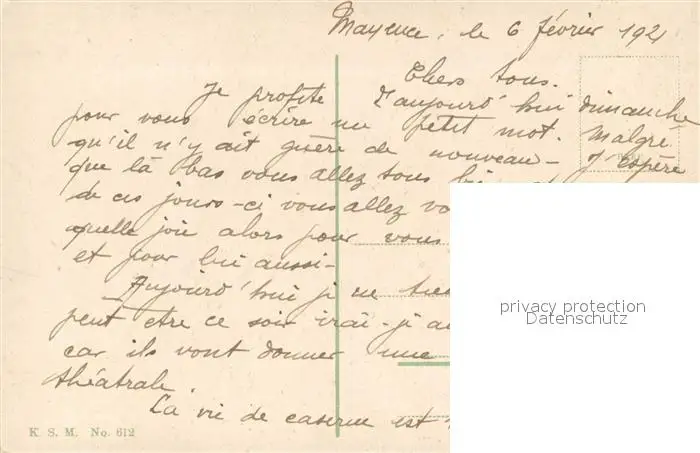 Mayence, le 6 février 1921
Chers tous.
Je profite d'aujourd'hui dimanche
pour vous écrire un petit mot. Malgré
qu'il n'y ait guère de nouveau - J'espère
que là bas vous allez tous
de ces jours-ci vous allez
quelle joie alors pour vous
et pour lui aussi -
Aujourd'hui je ne
peut etre ce soir irai-je
car ils vont donner une
théâtrale.
La vie de caserne est
K. S. M. No. 612
privacy protection
Datenschutz